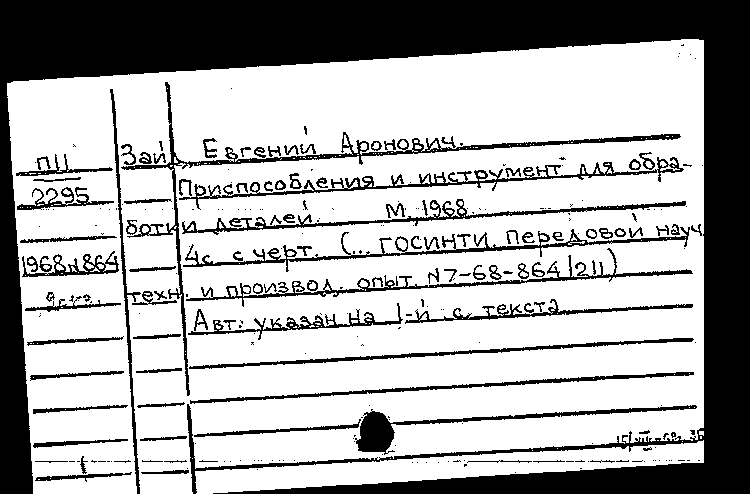 П11
2295
1968 н 864
2 экз.
Зайд, Евгений Аронович.
Приспособления и инструмент для обра-
ботки деталей. М., 1968.
4с. с черт. (... ГОСИНТИ. Передовой науч.
техн. и производ. опыт. N7-68-864/211)
Авт. указан на 1-й с. текста